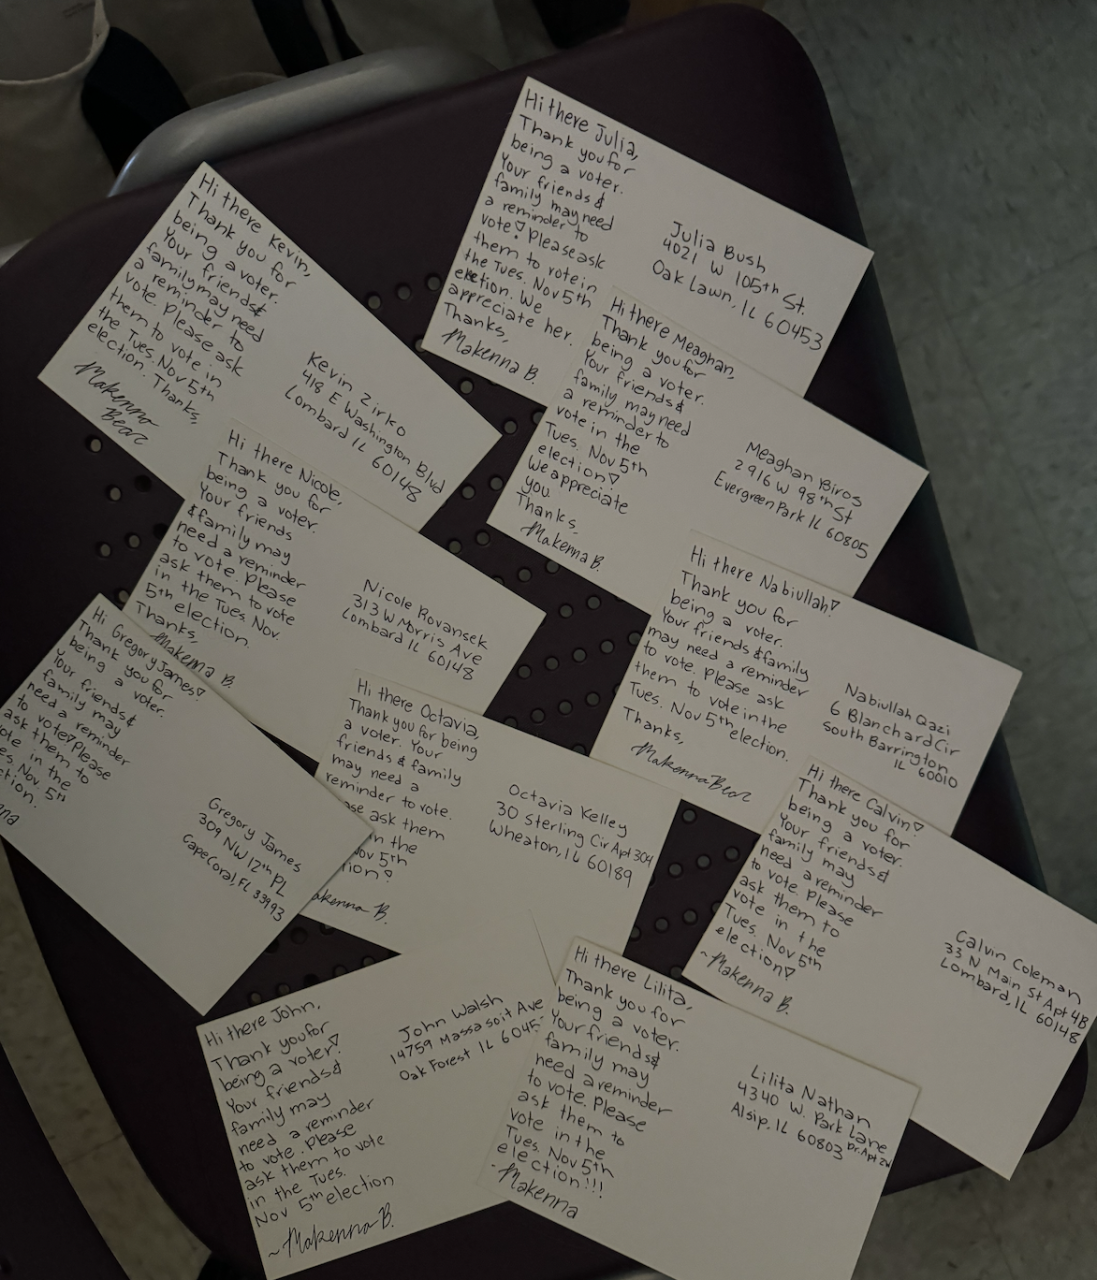 Hi there Julia,
Thank you for
being a voter.
Your friends &
family may need
a reminder to
vote! Please ask
them to vote in
the Tues. Nov 5th
election. We
appreciate her.
Thanks,
Makenna B.
Julia Bush
4021 W 105th St.
Oak Lawn, IL 60453
Hi there Kevin,
Thank you for
being a voter.
Your friends &
family may need
a reminder to
vote. Please ask
them to vote in
the Tues. Nov 5th
election. Thanks,
Makenna
Bear
Kevin Zirko
418 E Washington Blvd
Lombard IL 60148
Hi there Meaghan,
Thank you for
being a voter.
Your friends &
family may need
a reminder to
vote in the
Tues. Nov 5th
election!
We appreciate
you.
Thanks,
Makenna B.
Meaghan Biros
2916 W 98th St
Evergreen Park IL 60805
Hi there Nicole,
Thank you for
being a voter.
Your friends
& family may
need a reminder
to vote. Please
ask them to vote
in the Tues. Nov.
5th election.
Thanks,
Makenna B.
Nicole Rovansek
313 W Morris Ave
Lombard IL 60148
Hi there Nabiullah!
Thank you for
being a voter.
Your friends & family
may need a reminder
to vote. Please ask
them to vote in the
Tues. Nov 5th election.
Thanks,
Makenna Bear
Nabiullah Qazi
6 Blanchard Cir
South Barrington
IL 60010
Hi Gregory James!
Thank you for
being a voter.
Your friends &
family may
need a reminder
to vote! Please
ask them to
vote in the
es. Nov. 5th
ction.
nna
Gregory James
309 NW 12th PL
Cape Coral, FL 33993
Hi there Octavia,
Thank you for being
a voter. Your
friends & family
may need a
reminder to vote.
ase ask them
in the
ov 5th
tion!
akenna B.
Octavia Kelley
30 Sterling Cir Apt 304
Wheaton, IL 60189
Hi there Calvin!
Thank you for
being a voter.
Your friends &
family may
need a reminder
to vote. Please
ask them to
vote in the
Tues. Nov 5th
election!
~Makenna B.
Calvin Coleman
33 N Main St Apt 4B
Lombard, IL 60148
Hi there John,
Thank you for
being a voter!
Your friends &
family may
need a reminder
to vote. Please
ask them to vote
in the Tues.
Nov 5th election
~Makenna B.
John Walsh
14759 Massasoit Ave
Oak Forest IL 6045
Hi there Lilita,
Thank you for
being a voter.
Your friends &
family may
need a reminder
to vote. Please
ask them to
vote in the
Tues. Nov 5th
election!!!
-Makenna
Lilita Nathan
4340 W. Park Lane
Dr. Apt 2W
Alsip, IL 60803